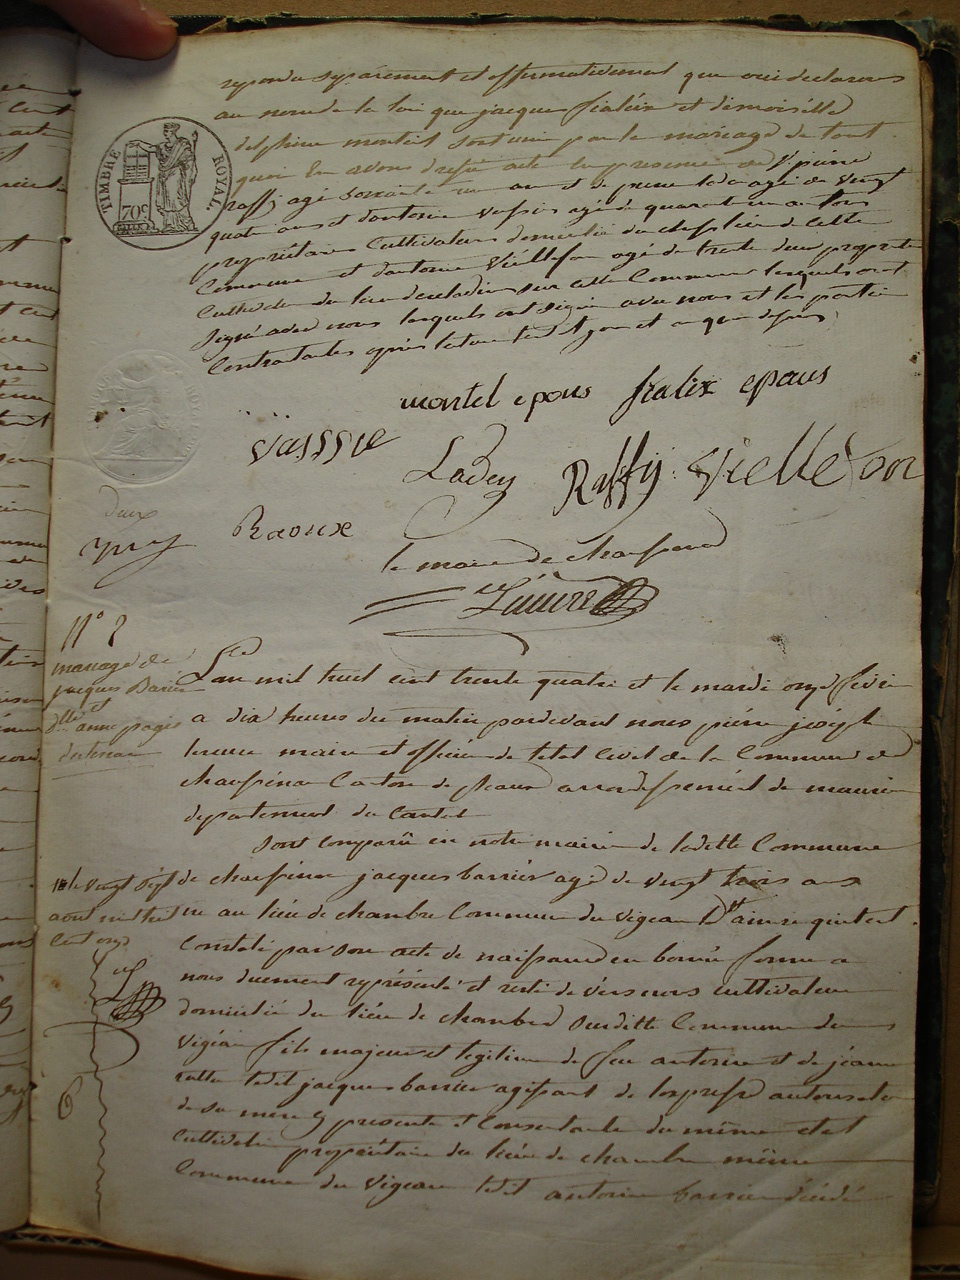 repondu separement et affirmativement que oui declarons
au nom de la loi que jacques fialeix et demoiselle
delphine monteil sont unis par le mariage de tout
quoi En avons dressé acte En presence de Sr pierre
raffy agé soixante un ans et de pierre ladey agé de vingt
quatre ans et d'antoine vaissie agé de quarante un an tous
propriétaires Cultivateurs domiciliés du chef lieu de cette
Commune et d'antoine Vieillefon agé de trente deux proprietaire
Cultivateur du lieu de sur cette Commune lesquels ont
Signé avec nous lesquels ont signé avec nous et les parties
Contractantes après lecture les dits jour et an que dessus
TIMBRE ROYAL
70c
montel epous fialix epous
vasssie
Ladey Raffy Viellefon
deux
Raoux
le maire de chaussenac
N° 2
mariage de
jacques Barier
et
dlle anne pagis
L'an mil huit cent trente quatre et le mardi onze fevrier
a dix heures du matin pardevant nous pierre joseph
maire et officier de l'etat Civil de la Commune de
chaussenac Canton de pleaux arrondissement de mauriac
departement du Cantal
Sont comparû en notre mairie de laditte Commune
de chaussenac jacques barrier agé de vingt trois ans
le vingt sept
aout mil huit
Cent onze
né au lieu de chambre Commune du vigean
Constaté par son acte de naissance en bonne forme a
nous duement représenté et resté de vers nous cultivateur
domicilié du lieu de chambre Surditte Commune du
Vigean fils majeur et legitime de feu antoine et de jeanne
ledit jacques barrier agissant de l'expresse autorisation
de sa mere y presente et Consentante du même etat
Cultivatrice propriétaire du lieu de chambre même
Commune du Vigean ledit antoine barrier décédé
6